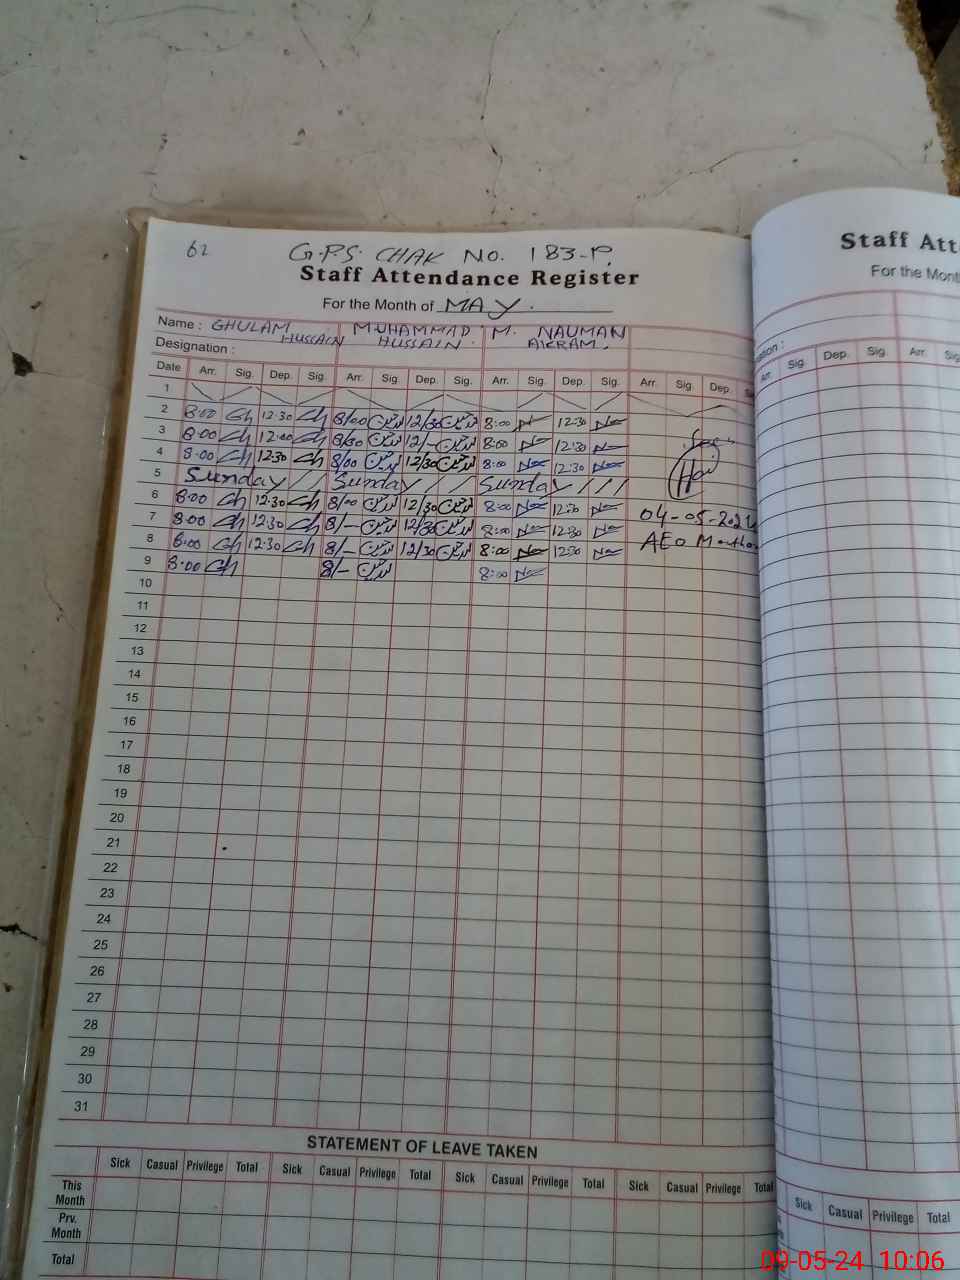 62 G.P.S. CHAK No. 183-P.
Staff Attendance Register
For the Month of MAY.
Name : GHULAM HUSSAIN MUHAMMAD HUSSAIN. M. NAUMAN AKRAM.
Designation :
Date Arr. Sig. Dep. Sig. Arr. Sig. Dep. Sig. Arr. Sig. Dep. Sig. Arr. Sig. Dep.
1
2 8:00 Gh 12:30 Gh 8/00 12/30 8:00 12:30
3 8:00 Gh 12:00 Gh 8/00 12/- 8:00 12:30
4 8:00 Gh 12:30 Gh 8/00 12/30 8:00 12:30
5 Sunday Sunday Sunday
6 8:00 Gh 12:30 Gh 8/00 12/30 8:00 12:30
7 8:00 Gh 12:30 Gh 8/- 12/30 8:00 12:30
8 8:00 Gh 12:30 Gh 8/- 12/30 8:00 12:30
9 8:00 Gh 8/- 8:00
04-05-2024
AEO
10
11
12
13
14
15
16
17
18
19
20
21
22
23
24
25
26
27
28
29
30
31
STATEMENT OF LEAVE TAKEN
Sick Casual Privilege Total Sick Casual Privilege Total Sick Casual Privilege Total Sick Casual Privilege Total
This Month
Prv. Month
Total
Staff Att
For the Mont
Arr. Sig. Dep. Sig. Arr.
Sick Casual Privilege Total
09-05-24 10:06